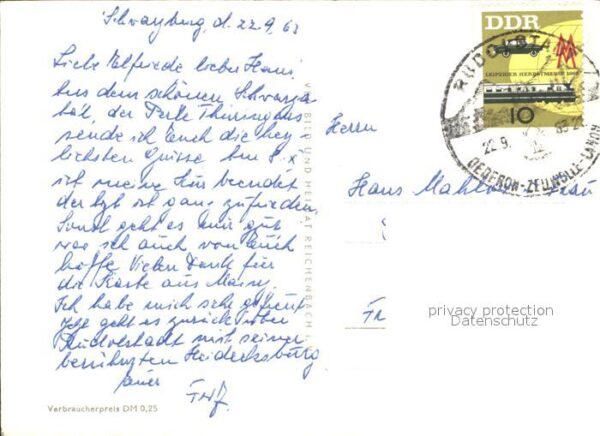 Schwarzburg, d. 22.9.63
Liebe Elfriede lieber Hans,
Aus dem schönen Schwarza
tal, der Perle Thüringens
sende ich Euch die herz
lichsten Grüsse. Am 8.X.
ist meine Kur beendet
der Arzt ist ganz zufrieden
Sonst geht es mir gut
was ich auch von Euch
hoffe. Vielen Dank für
die Karte aus Mainz.
Ich habe mich sehr gefreut
Jetzt geht es zurück über
Rudolstadt mit seiner
berühmten Heidecksburg
Euer
Verbraucherpreis DM 0,25
BILD UND HEIMAT REICHENBACH
DDR
MM
LEIPZIGER HERBSTMESSE 1963
10
RUDOLSTADT
22.9. 63
DEDERON-ZELLWOLLE-LANON
Herrn
Hans Frau
privacy protection
Datenschutz